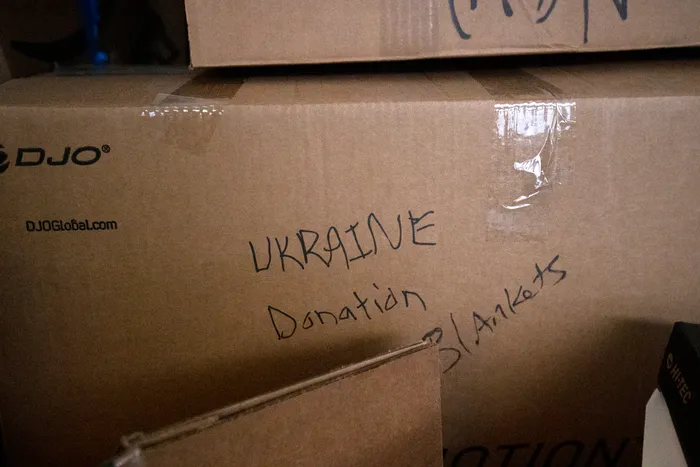 DJO®
DJOGlobal.com
UKRAINE
Donation
Blankets
HI-TEC
OTION